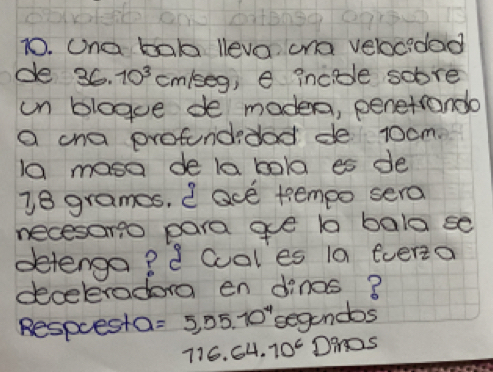 10. Una bala lleva una velocidad
de 36.10³ cm/seg, e incide sobre
un bloque de madera, penetrando
a una profundidad de 10cm.
la masa de la bala es de
1,8 gramos. ¿Qué tiempo sera
necesario para que la bala se
detenga? ¿Cual es la fuerza
deceleradora en dinas?
Respuesta= 5,55.10⁻⁴ segundos
116.64.10⁶ Dinas